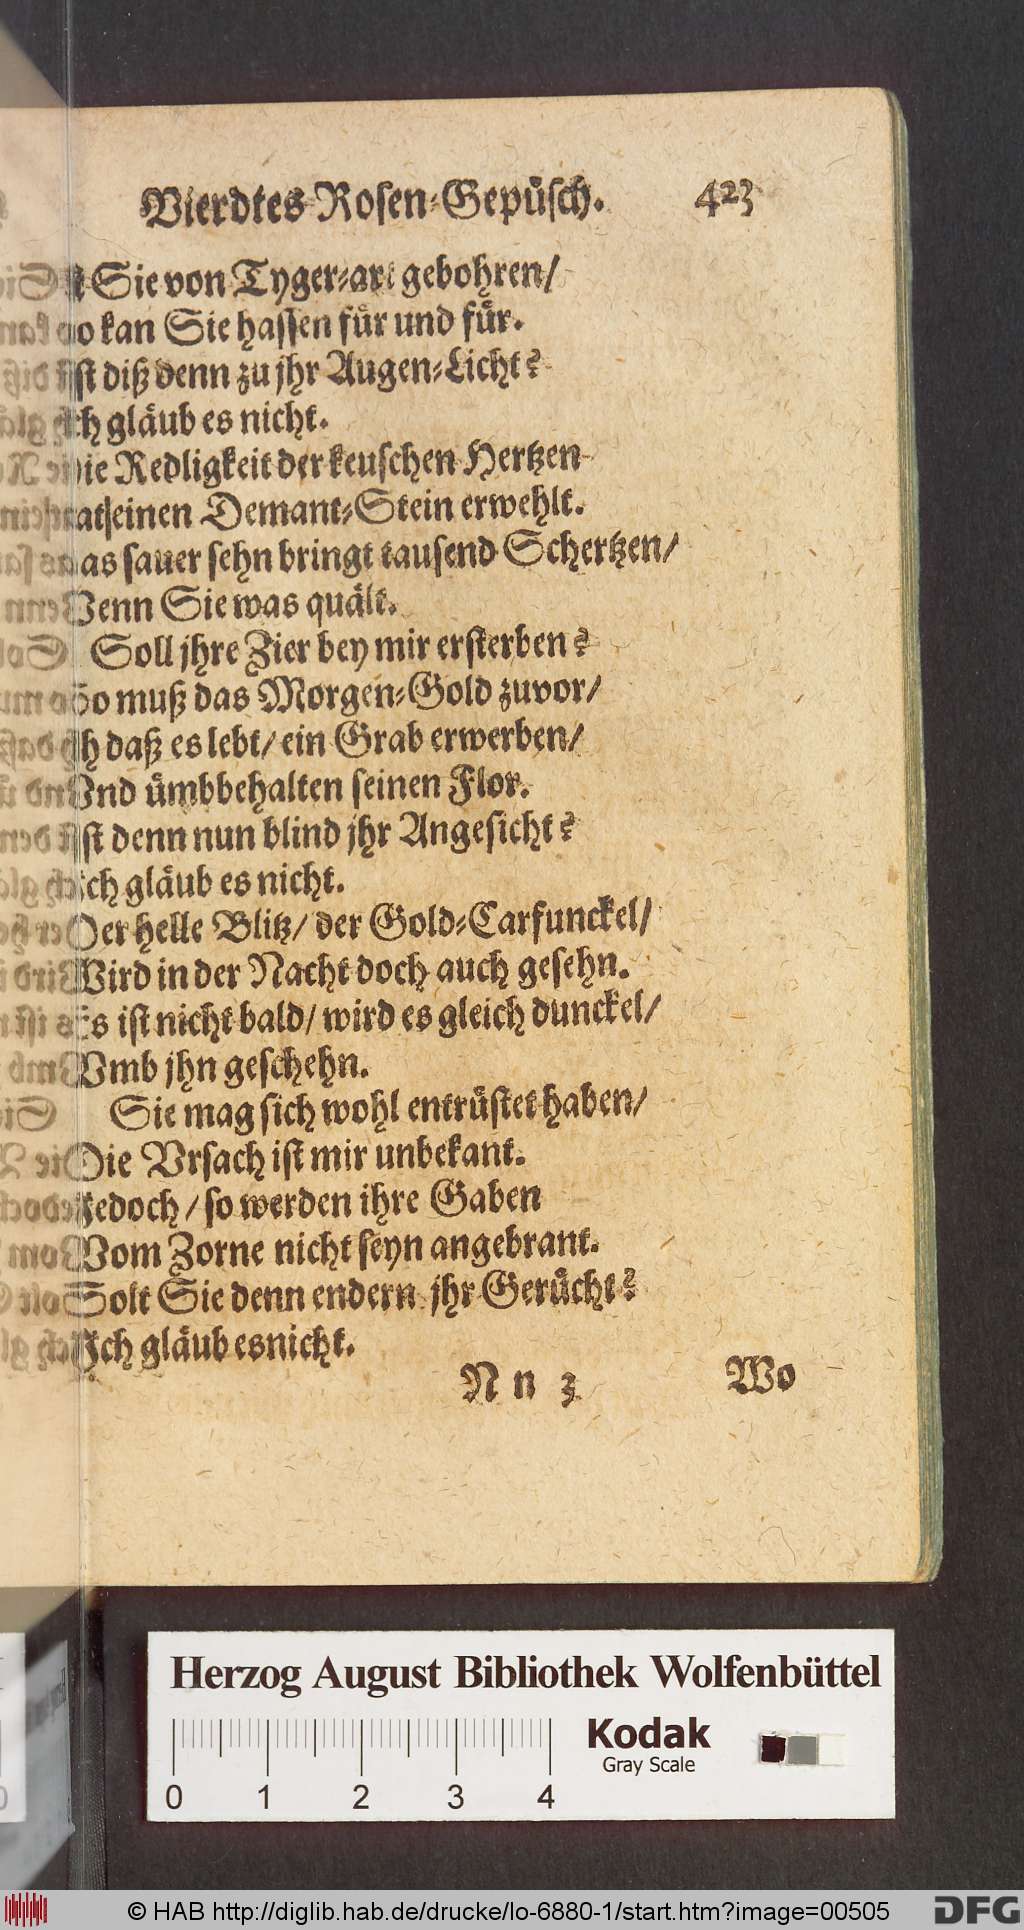 Vierdtes Rosen-Gepüsch. 423
Ist Sie von Tyger-art gebohren/
So kan Sie hassen für und für.
Ist diß denn zu jhr Augen-Licht?
Ich gläub es nicht.
Die Redligkeit der keuschen Hertzen
Hat einen Demant-Stein erwehlt.
Das sauer sehn bringt tausend Schertzen/
Wenn Sie was quält.
Soll jhre Zier bey mir ersterben?
So muß das Morgen-Gold zuvor/
Eh daß es lebt/ ein Grab erwerben/
Vnd ümbbehalten seinen Flor.
Ist denn nun blind jhr Angesicht?
Ich gläub es nicht.
Der helle Blitz/ der Gold-Carfunckel/
Wird in der Nacht doch auch gesehn.
Es ist nicht bald/ wird es gleich dunckel/
Vmb jhn geschehn.
Sie mag sich wohl entrüstet haben/
Die Vrsach ist mir unbekant.
Jedoch/ so werden ihre Gaben
Vom Zorne nicht seyn angebrant.
Solt Sie denn endern jhr Gerücht?
Ich gläub es nicht.
N n 3 Wo
Herzog August Bibliothek Wolfenbüttel
Kodak
Gray Scale
0 1 2 3 4
© HAB http://diglib.hab.de/drucke/lo-6880-1/start.htm?image=00505
DFG